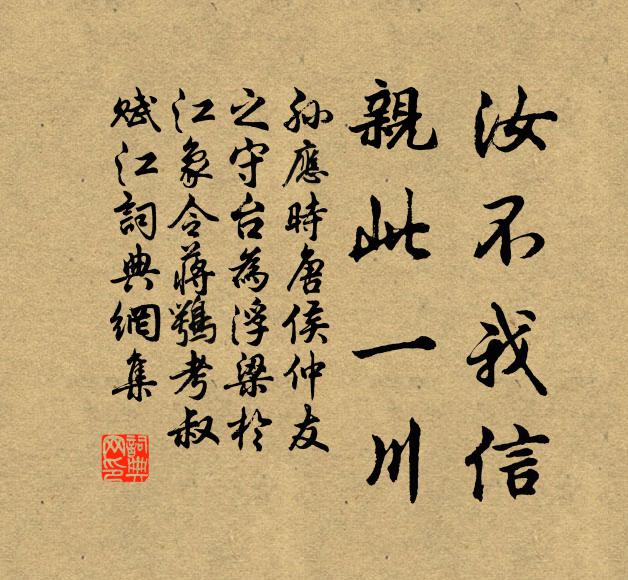 汝不我信
親此一川
孙應時唐侯仲友
之守台為浮梁於
江象令蔣鶚考叔
賦江詞典網集
詞典网印